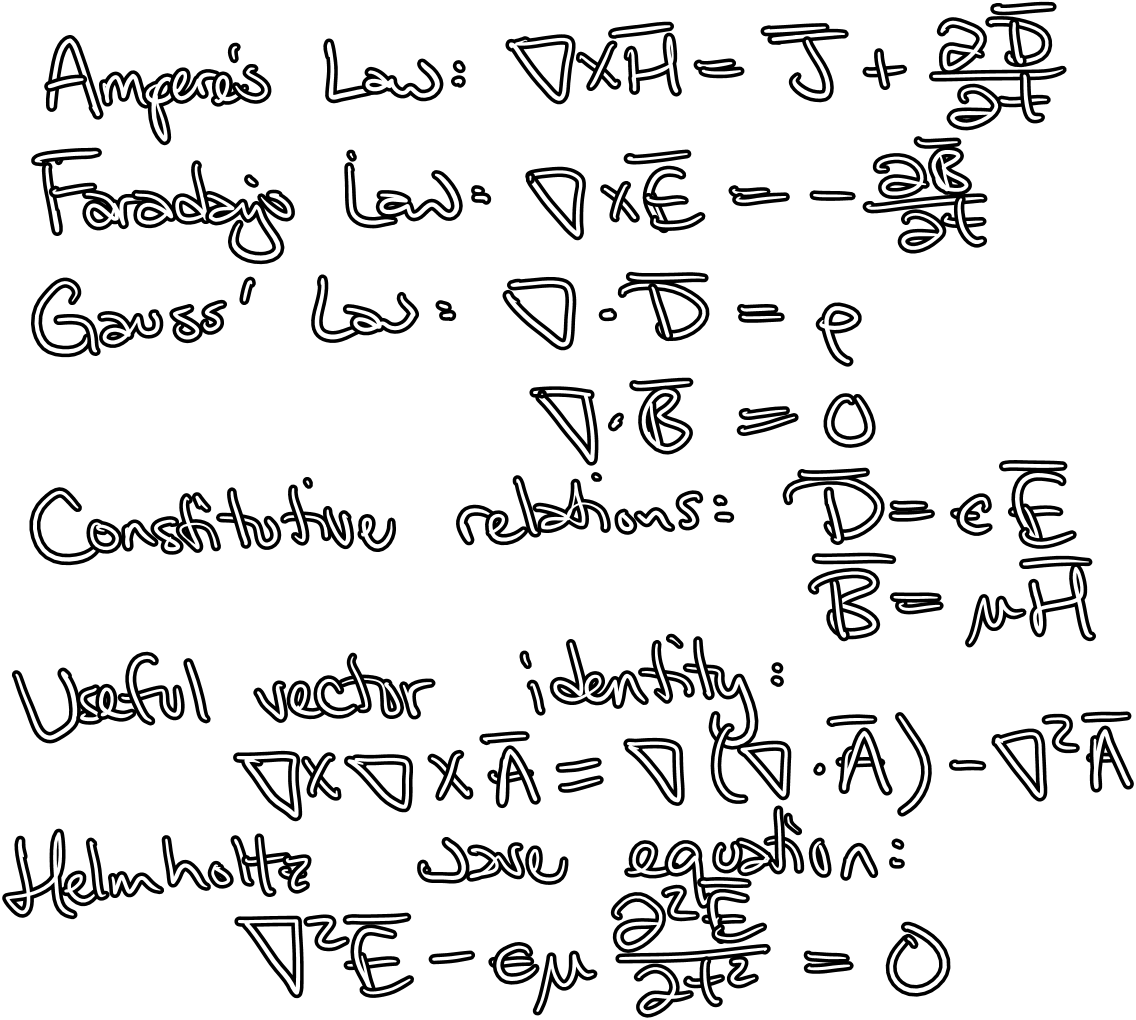 Ampere's Law: ∇×H̅ = J̅ + ∂D̅/∂t
Faraday's Law: ∇×E̅ = -∂B̅/∂t
Gauss' Law: ∇·D̅ = ρ
∇·B̅ = 0
Constitutive relations: D̅ = ϵE̅
B̅ = μH̅
Useful vector identity:
∇×∇×A̅ = ∇(∇·A̅) - ∇²A̅
Helmholtz wave equation:
∇²E̅ - ϵμ ∂²E̅/∂t² = 0